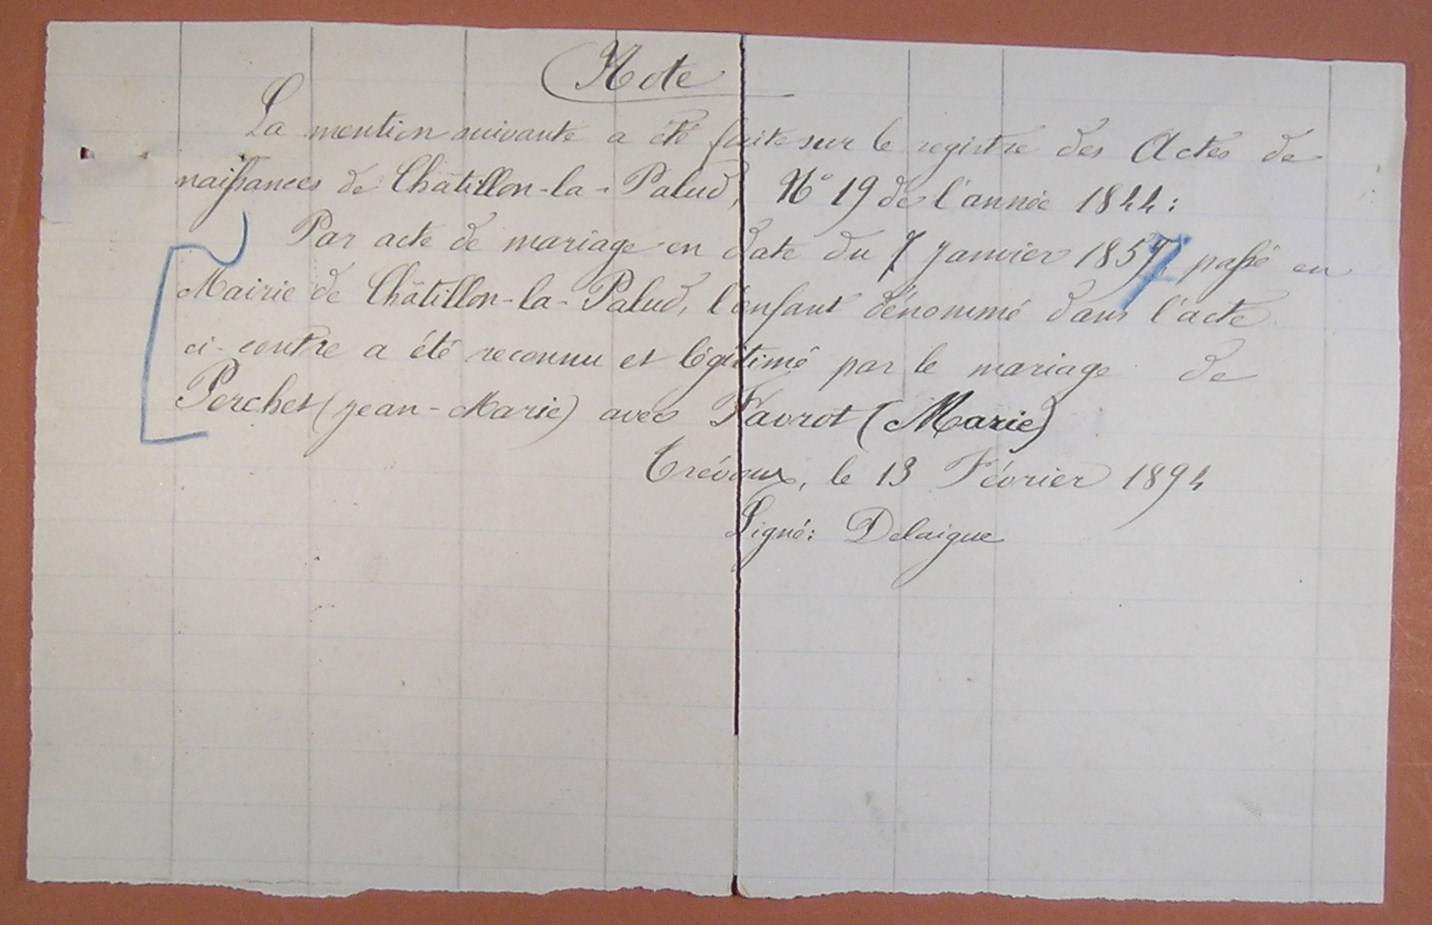 Note
La mention suivante a été faite sur le registre des Actes de
naissances de Châtillon-la-Palud, N° 19 de l'année 1844:
Par acte de mariage en date du 7 Janvier 1857, passé en
Mairie de Châtillon-la-Palud, l'enfant dénommé dans l'acte
ci-contre a été reconnu et légitimé par le mariage de
Perchet (Jean-Marie) avec Favrot (Marie)
Trévoux, le 13 Février 1894
Signé: Delaigue